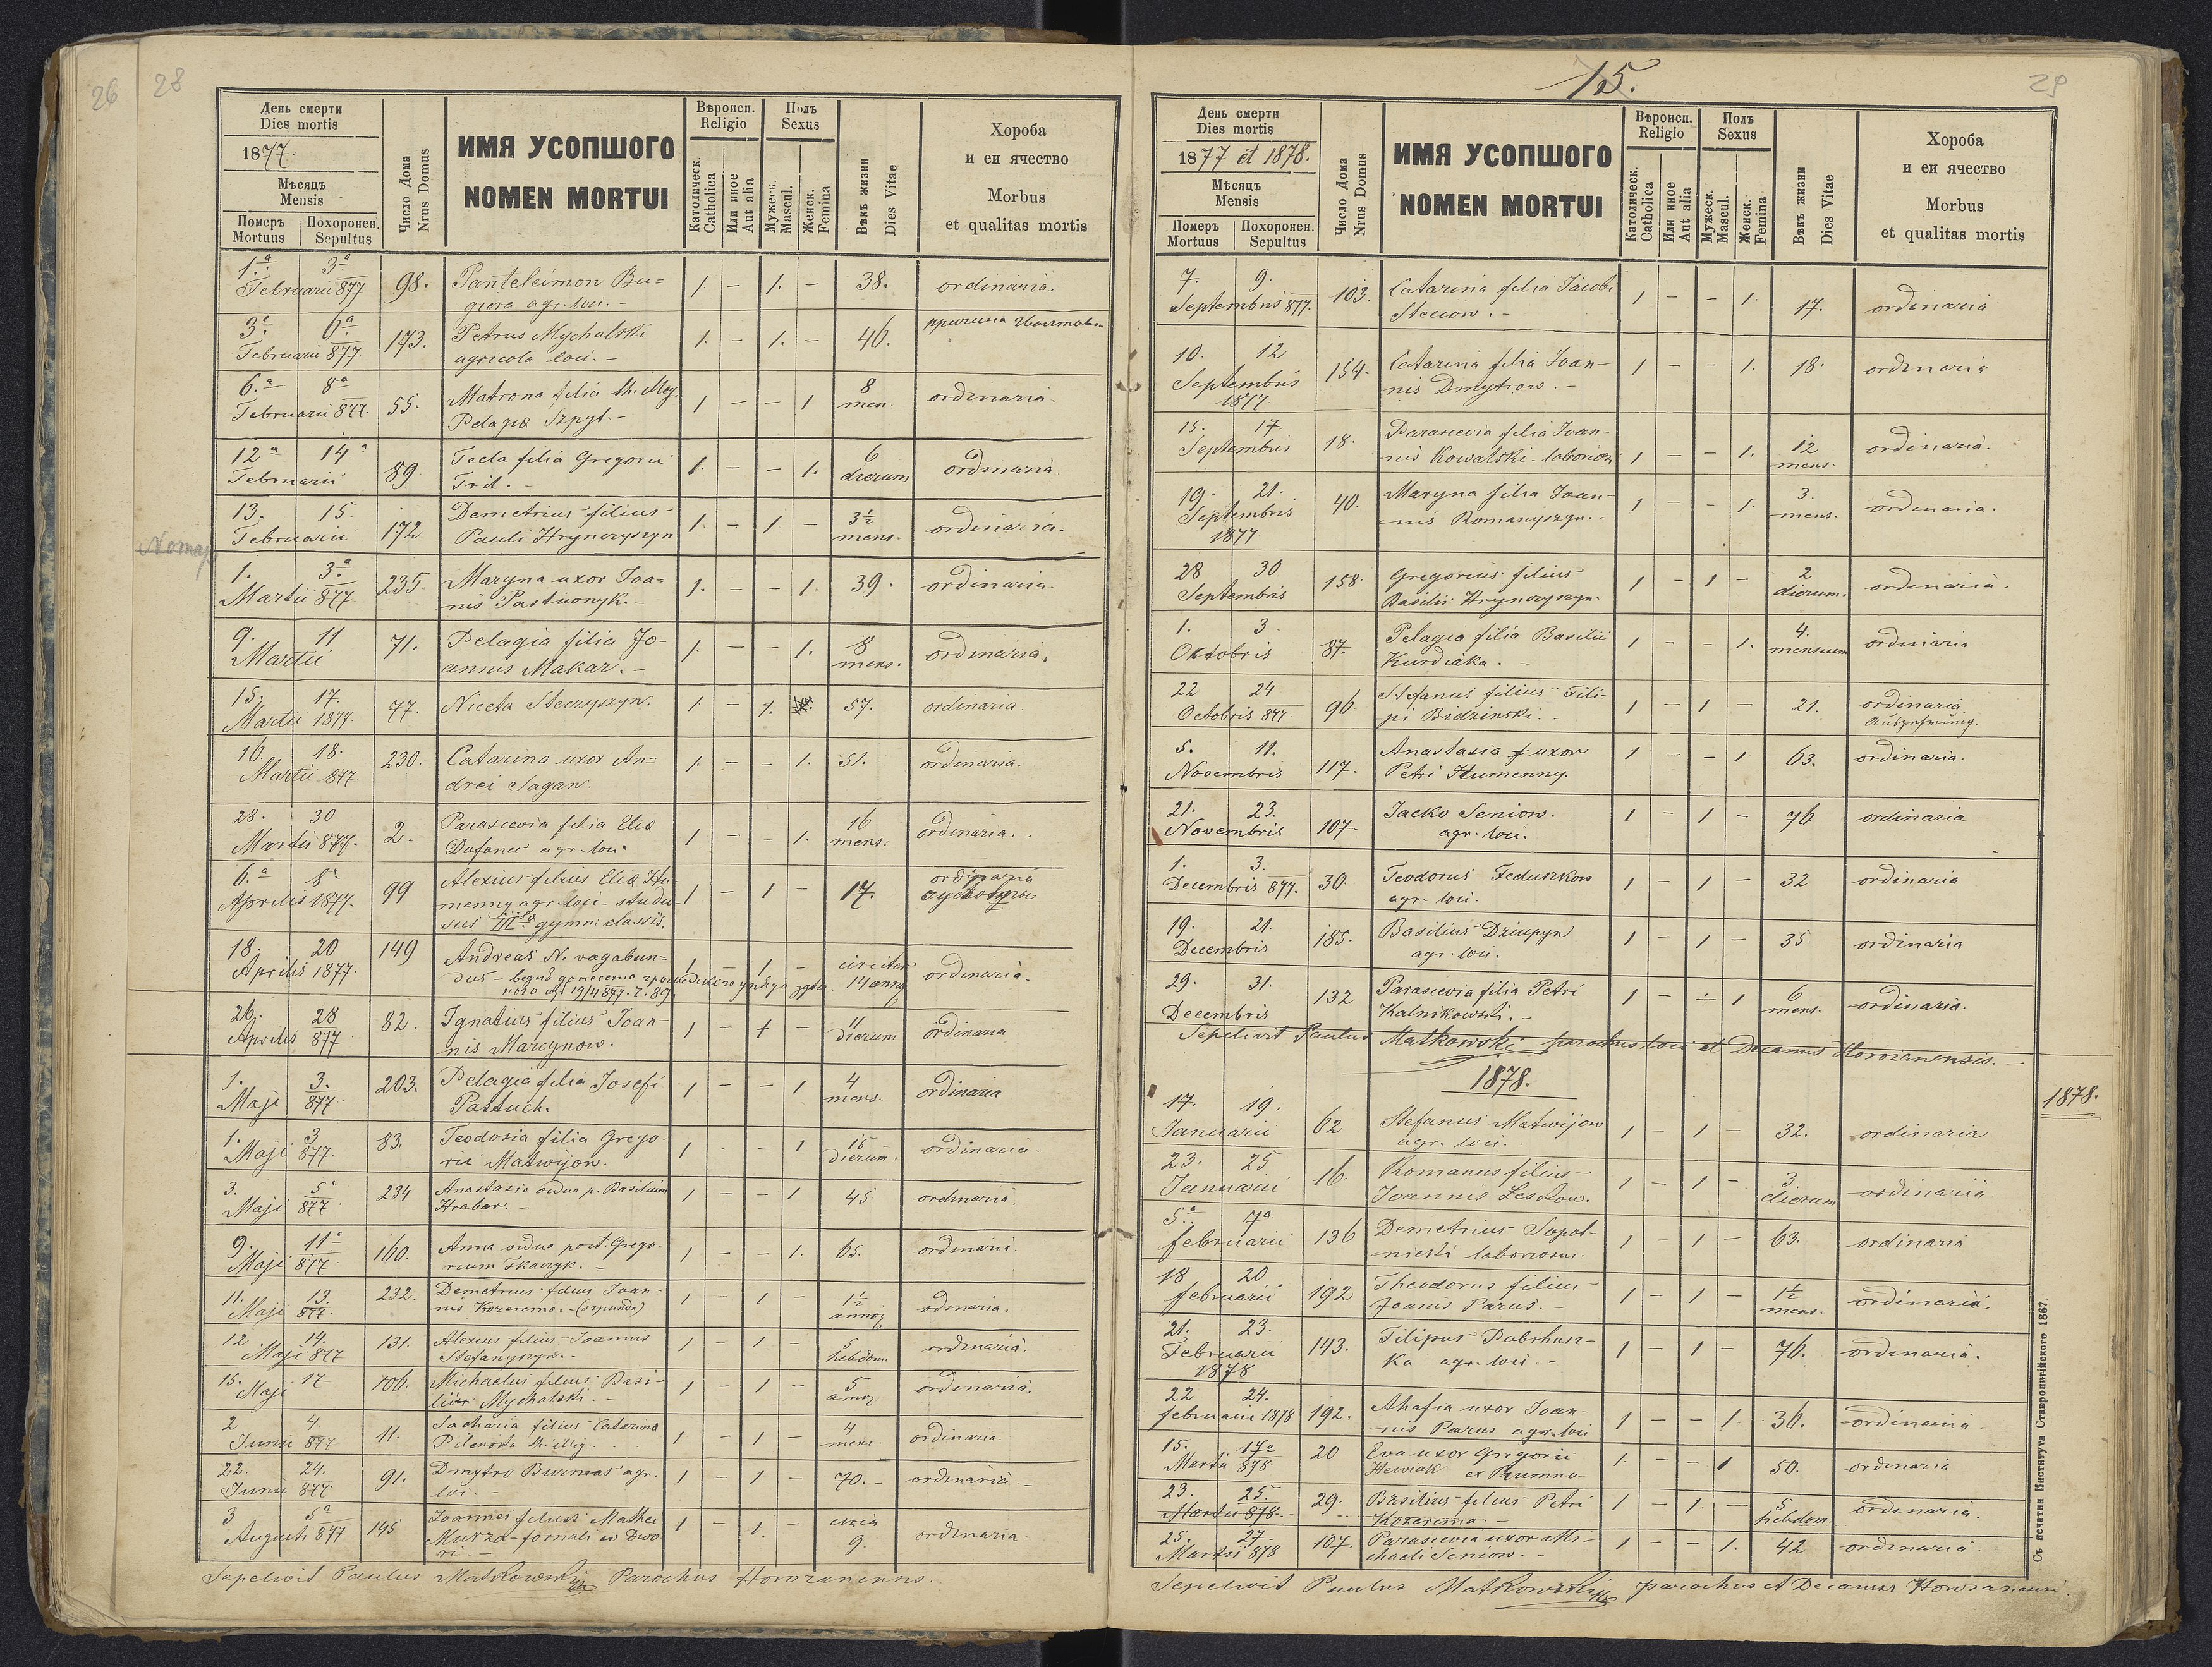 26 28
День смерти
Dies mortis
1877.
Мѣсяцъ
Mensis
Померъ Похоронен.
Mortuus Sepultus
Число Дома
Nrus Domus
ИМЯ УСОПШОГО
NOMEN MORTUI
Вѣроисп.
Religio
Католическ.
Catholica
Или иное
Aut alia
Полъ
Sexus
Мужеск.
Mascul.
Женск.
Femina
Вѣкъ жизни
Dies Vitae
Хороба
и еи ячество
Morbus
et qualitas mortis
1.a 3a 98. Panteleimon Bu= 1. – 1. – 38. ordinaria.
Februarii 877 giera agr. loci. –
3. 6a 173. Petrus Mychalski 1. – 1. – 46. причина
Februarii 877. agricola loci. –
6.a 8a 55. Matrona filia 1 – – 1 8 men. ordinaria
Februarii 877. Pelagiæ Szpyt. –
12a 14.a 89 Tecla filia Gregorii 1. – – 1. 6 dierum ordinaria
Februarii Tril. –
13. 15. 172 Demetrius filius 1. – 1 – 3½ mens. ordinaria.
Februarii Pauli Hrynczyszyn
1. 3.a 235. Maryna uxor Joa= 1. – – 1. 39. ordinaria.
Martii 877 nis Pastuonyk. –
9. 11 71. Pelagia filia Jo- 1. – – 1. 8 mens. ordinaria.
Martii annis Makar. –
15. 17. 77. Niceta Steczyszyn. 1 – 1. 57. ordinaria.
Martii 1877.
16. 18. 230. Catarina uxor An= 1. – – 1. 51. ordinaria.
Martii 877. drei Sagan.
28. 30 2. Parascevia filia Eliæ 1 – – 1. 16 mens. ordinaria.
Martii 877. agr. loci
6.a 8a 99 Alexius filius Eliæ Hu- 1 – 1 – 17. ordinaria
Aprilis 1877. menny agr. loci - studio- сухоты
sus III gymn: classis.
18. 20 149 Andreas N. vagabun- 1 – 1 – circiter 14 ann. ordinaria.
Aprilis 1877. dus –
19/4 877. z. 89.
26. 28 82. Ignatius filius Joan- 1 – 1 – 11 dierum ordinaria
Aprilis 877 nis Marcynow.
1. 3. 203. Pelagia filia Josefi 1 – – 1 4 mens. ordinaria
Maji 877 Pastuch.
1. 3 83. Teodosia filia Grego- 1 – – 1 15 dierum. ordinaria.
Maji 877. rii Matwijow.
3. 5a 234 Anastasia vidua p. Basilium 1 – – 1 45 ordinaria.
Maji 877 Hrabar. –
9. 11a 160. Anna vidua post. Grego- 1 – – 1. 65. ordinaria.
Maji 877 rium Tkaczyk. –
11. 13. 232. Demetrius filius Joan- 1 – 1 – 1½ ordinaria.
Maji 877. nis Kozerema. –
12 14 131. Alexius filius Joannis 1 – 1 – 5 hebdom. ordinaria.
Maji 877 Stefanyszyn. –
15. 17 106. Michaelus filius Basi- 1 – 1 – 5 ordinaria.
Maji lii Mychalski –
2 4. 11. Sacharia filius Catarina 1 – 1 – 4 mens. ordinaria.
Junii 877
22. 24. 91. Dmytro Burmas agr. 1 – 1 – 70. – ordinaria –
Junii 877 loci. –
3 5a 145 Joannes filius Mathei 1 – 1. – circa 9. ordinaria.
Augusti 877 Murza – fornali w Dwo
ri. –
Sepelivit Paulus Matkowski Parochus
15. 29
День смерти
Dies mortis
1877 et 1878.
Мѣсяцъ
Mensis
Померъ Похоронен.
Mortuus Sepultus
Число Дома
Nrus Domus
ИМЯ УСОПШОГО
NOMEN MORTUI
Вѣроисп.
Religio
Католическ.
Catholica
Или иное
Aut alia
Полъ
Sexus
Мужеск.
Mascul.
Женск.
Femina
Вѣкъ жизни
Dies Vitae
Хороба
и еи ячество
Morbus
et qualitas mortis
7. 9. 103. Catarina filia Jacobi 1 – – 1. 17. ordinaria
Septembris 877. Steciow. –
10. 12 154. Catarina filia Joan- 1 – – 1. 18. ordinaria
Septembris 1877. nis Dmytrow. –
15. 17 18. Parascevia filia Joan- 1 – – 1. 12 mens. ordinaria.
Septembris nis Kowalski – laboriosi
19. 21. 40. Maryna filia Joan- 1 – 1. 3. mens. ordinaria.
Septembris 1877. nis Romanyszyn. –
28 30 158. Gregorius filius 1 – 1 – 2 dierum. ordinaria.
Septembris Basilii Hrynczyszyn.
1. 3. 87. Pelagia filia Basilii 1 – – 1. 4. mensium ordinaria
Oktobris Kurdiaka. –
22 24 96 Stefanus filius Fili- 1 – 1 – 21. ordinaria
Octobris 877. pi Bidzinski. – Auszehrung.
5. 11. 117. Anastasia uxor 1 – – 1 63. ordinaria.
Novembris Petri Humenny.
21. 23. 107 Jacko Seniow. 1 – 1 – 76 ordinaria
Novembris agr. loci.
1. 3. 30. Teodorus Feduszkow 1 – 1 – 32 ordinaria
Decembris 877. agr. loci.
19. 21. 185. Basilius Dziupyn 1 – 1 – 35. ordinaria
Decembris agr. loci.
29. 31. 132 Parascevia filia Petri 1 – – 1 6 mens. ordinaria.
Decembris Kalnikowski. –
Sepelivit Paulus Matkowski parochus loci et Decanus Horozanensis. –
1878.
1878.
17. 19. 62 Stefanus Matwijow 1 – 1 – 32. ordinaria
Januarii agr. loci.
23. 25. 16. Romanus filius 1 – 1 – 3 dierum ordinaria
Januarii Joannis Leskow.
5.a 7a. 136 Demetrius Sopot- 1 – 1 – 63. ordinaria
februarii nicki laboriosus.
18 20 192 Theodorus filius 1 – 1 – 1½ mens. ordinaria.
februarii Joanis Parus. –
21. 23. 143. Filipus 1 – 1 – 76. ordinaria.
Februarii 1878 ka agr. loci –
22 24. 192. Ahafia uxor Joan- 1 – – 1. 36. ordinaria
februarii 1878 nis Parus agr. loci
15. 17a 20 Eva uxor Gregorii 1. – – 1 50. ordinaria
Martii 878 Hewiak ex Rumno
23. 25. 29. Basilius filius Petri 1 – 1. – 5 hebdom. ordinaria.
Martii 878 Kozerema –
25. 27 107. Parascevia uxor Mi- 1 – – 1. 42 ordinaria.
Martii 878 chaeli Seniow. –
Sepelivit Paulus Matkowski parochus et Decanus
Съ печатни Института Ставропигійского 1867.